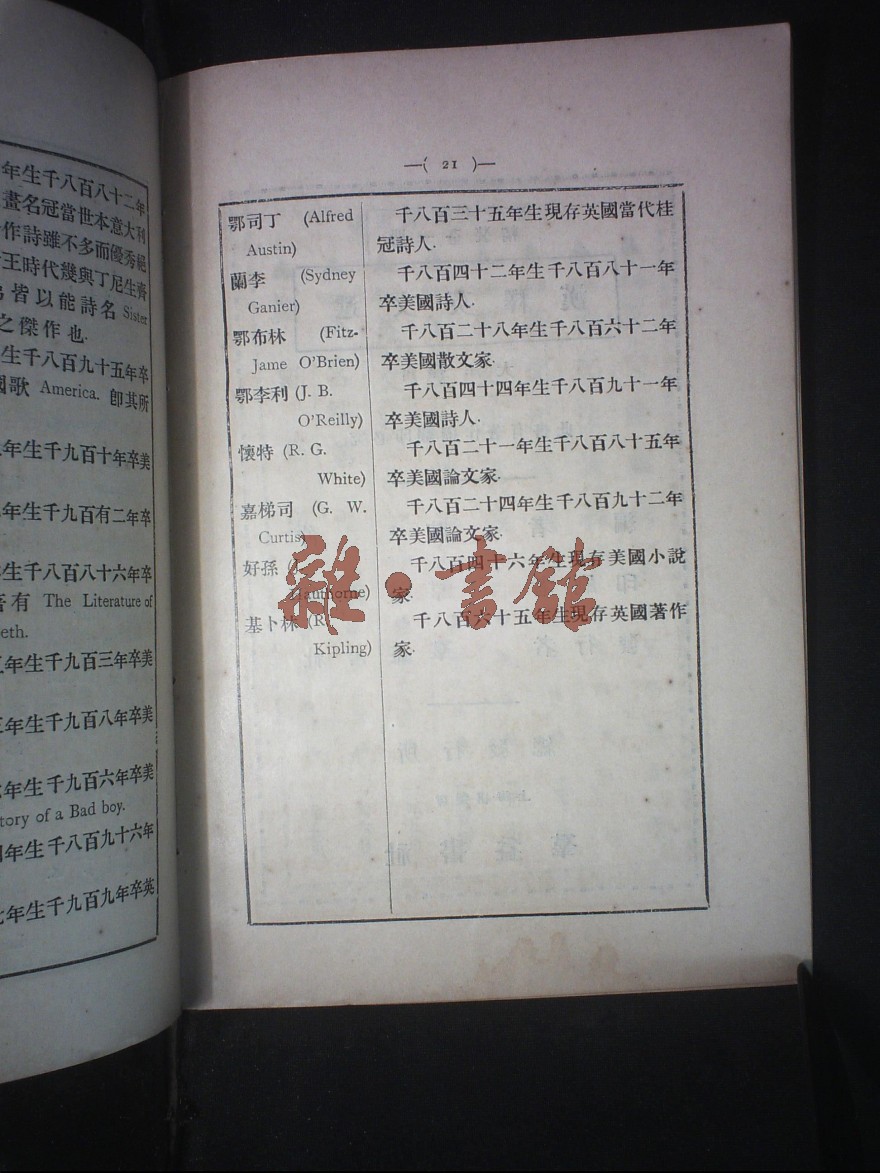 年生千八百八十二年
畫名冠當世本意大利
作詩雖不多而優秀絕
王時代幾與丁尼生齊
皆以能詩名 Sister
之傑作也.
生千八百九十五年卒
國歌 America. 卽其所
年生千九百十年卒美
年生千九百有二年卒
生千八百八十六年卒
著有 The Literature of
eth.
年生千九百三年卒美
年生千九百八年卒美
年生千九百六年卒美
tory of a Bad boy.
年生千八百九十六年
年生千九百九年卒英
—( 21 )—
鄂司丁 (Alfred Austin) 千八百三十五年生現存英國當代桂
冠詩人.
蘭李 (Sydney Ganier) 千八百四十二年生千八百八十一年
卒美國詩人.
鄂布林 (Fitz-Jame O'Brien) 千八百二十八年生千八百六十二年
卒美國散文家.
鄂李利 (J. B. O'Reilly) 千八百四十四年生千八百九十一年
卒美國詩人.
懷特 (R. G. White) 千八百二十一年生千八百八十五年
卒美國論文家.
嘉梯司 (G. W. Curtis) 千八百二十四年生千八百九十二年
卒美國論文家.
好孫 (J. Hauthorne) 千八百四十六年生現存美國小說
家.
基卜林 (R. Kipling) 千八百六十五年生現存英國著作
家.
雜·書館